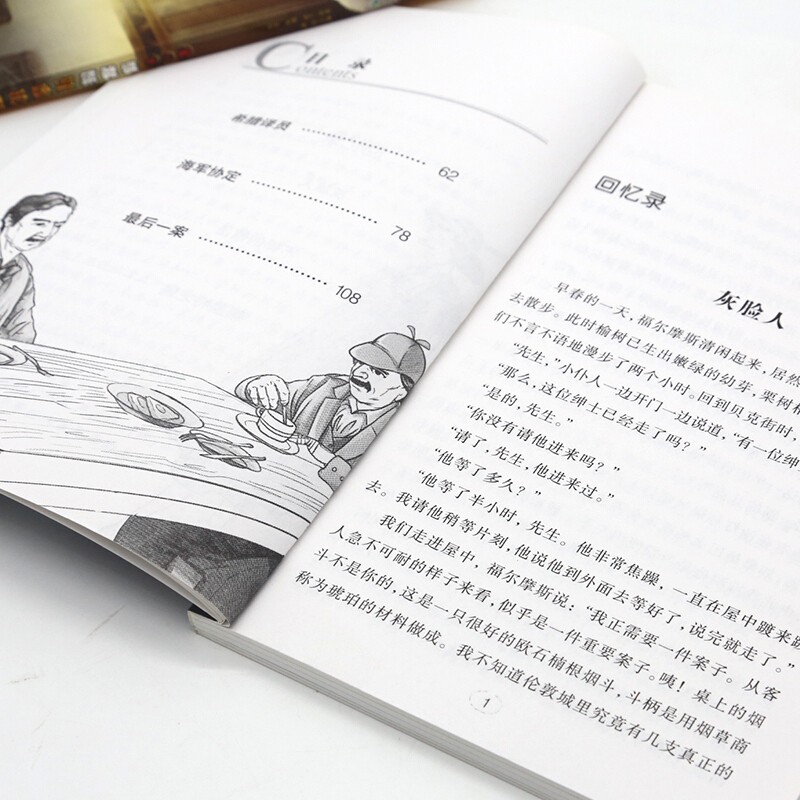 目录
Contents
希腊译员 …………………… 62
海军协定 …………………… 78
最后一案 …………………… 108
回忆录
灰脸人
早春的一天，福尔摩斯清闲起来，居然
去散步。此时榆树已生出嫩绿的幼芽，栗树
们不言不语地漫步了两个小时。回到贝克街时，
“先生，”小仆人一边开门一边说道，“有一位绅
“那么，这位绅士已经走了吗？”
“是的，先生。”
“你没有请他进来吗？”
“请了，先生，他进来过。”
“他等了多久？”
“他等了半小时，先生。他非常焦躁，一直在屋中踱来踱
去。我请他稍等片刻，他说他到外面去等好了，说完就走了。”
我们走进屋中，福尔摩斯说：“我正需要一件案子。从客
人急不可耐的样子来看，似乎是一件重要案子。咦！桌上的烟
斗不是你的，这是一只很好的欧石楠根烟斗，斗柄是用烟草商
称为琥珀的材料做成。我不知道伦敦城里究竟有几支真正的
1